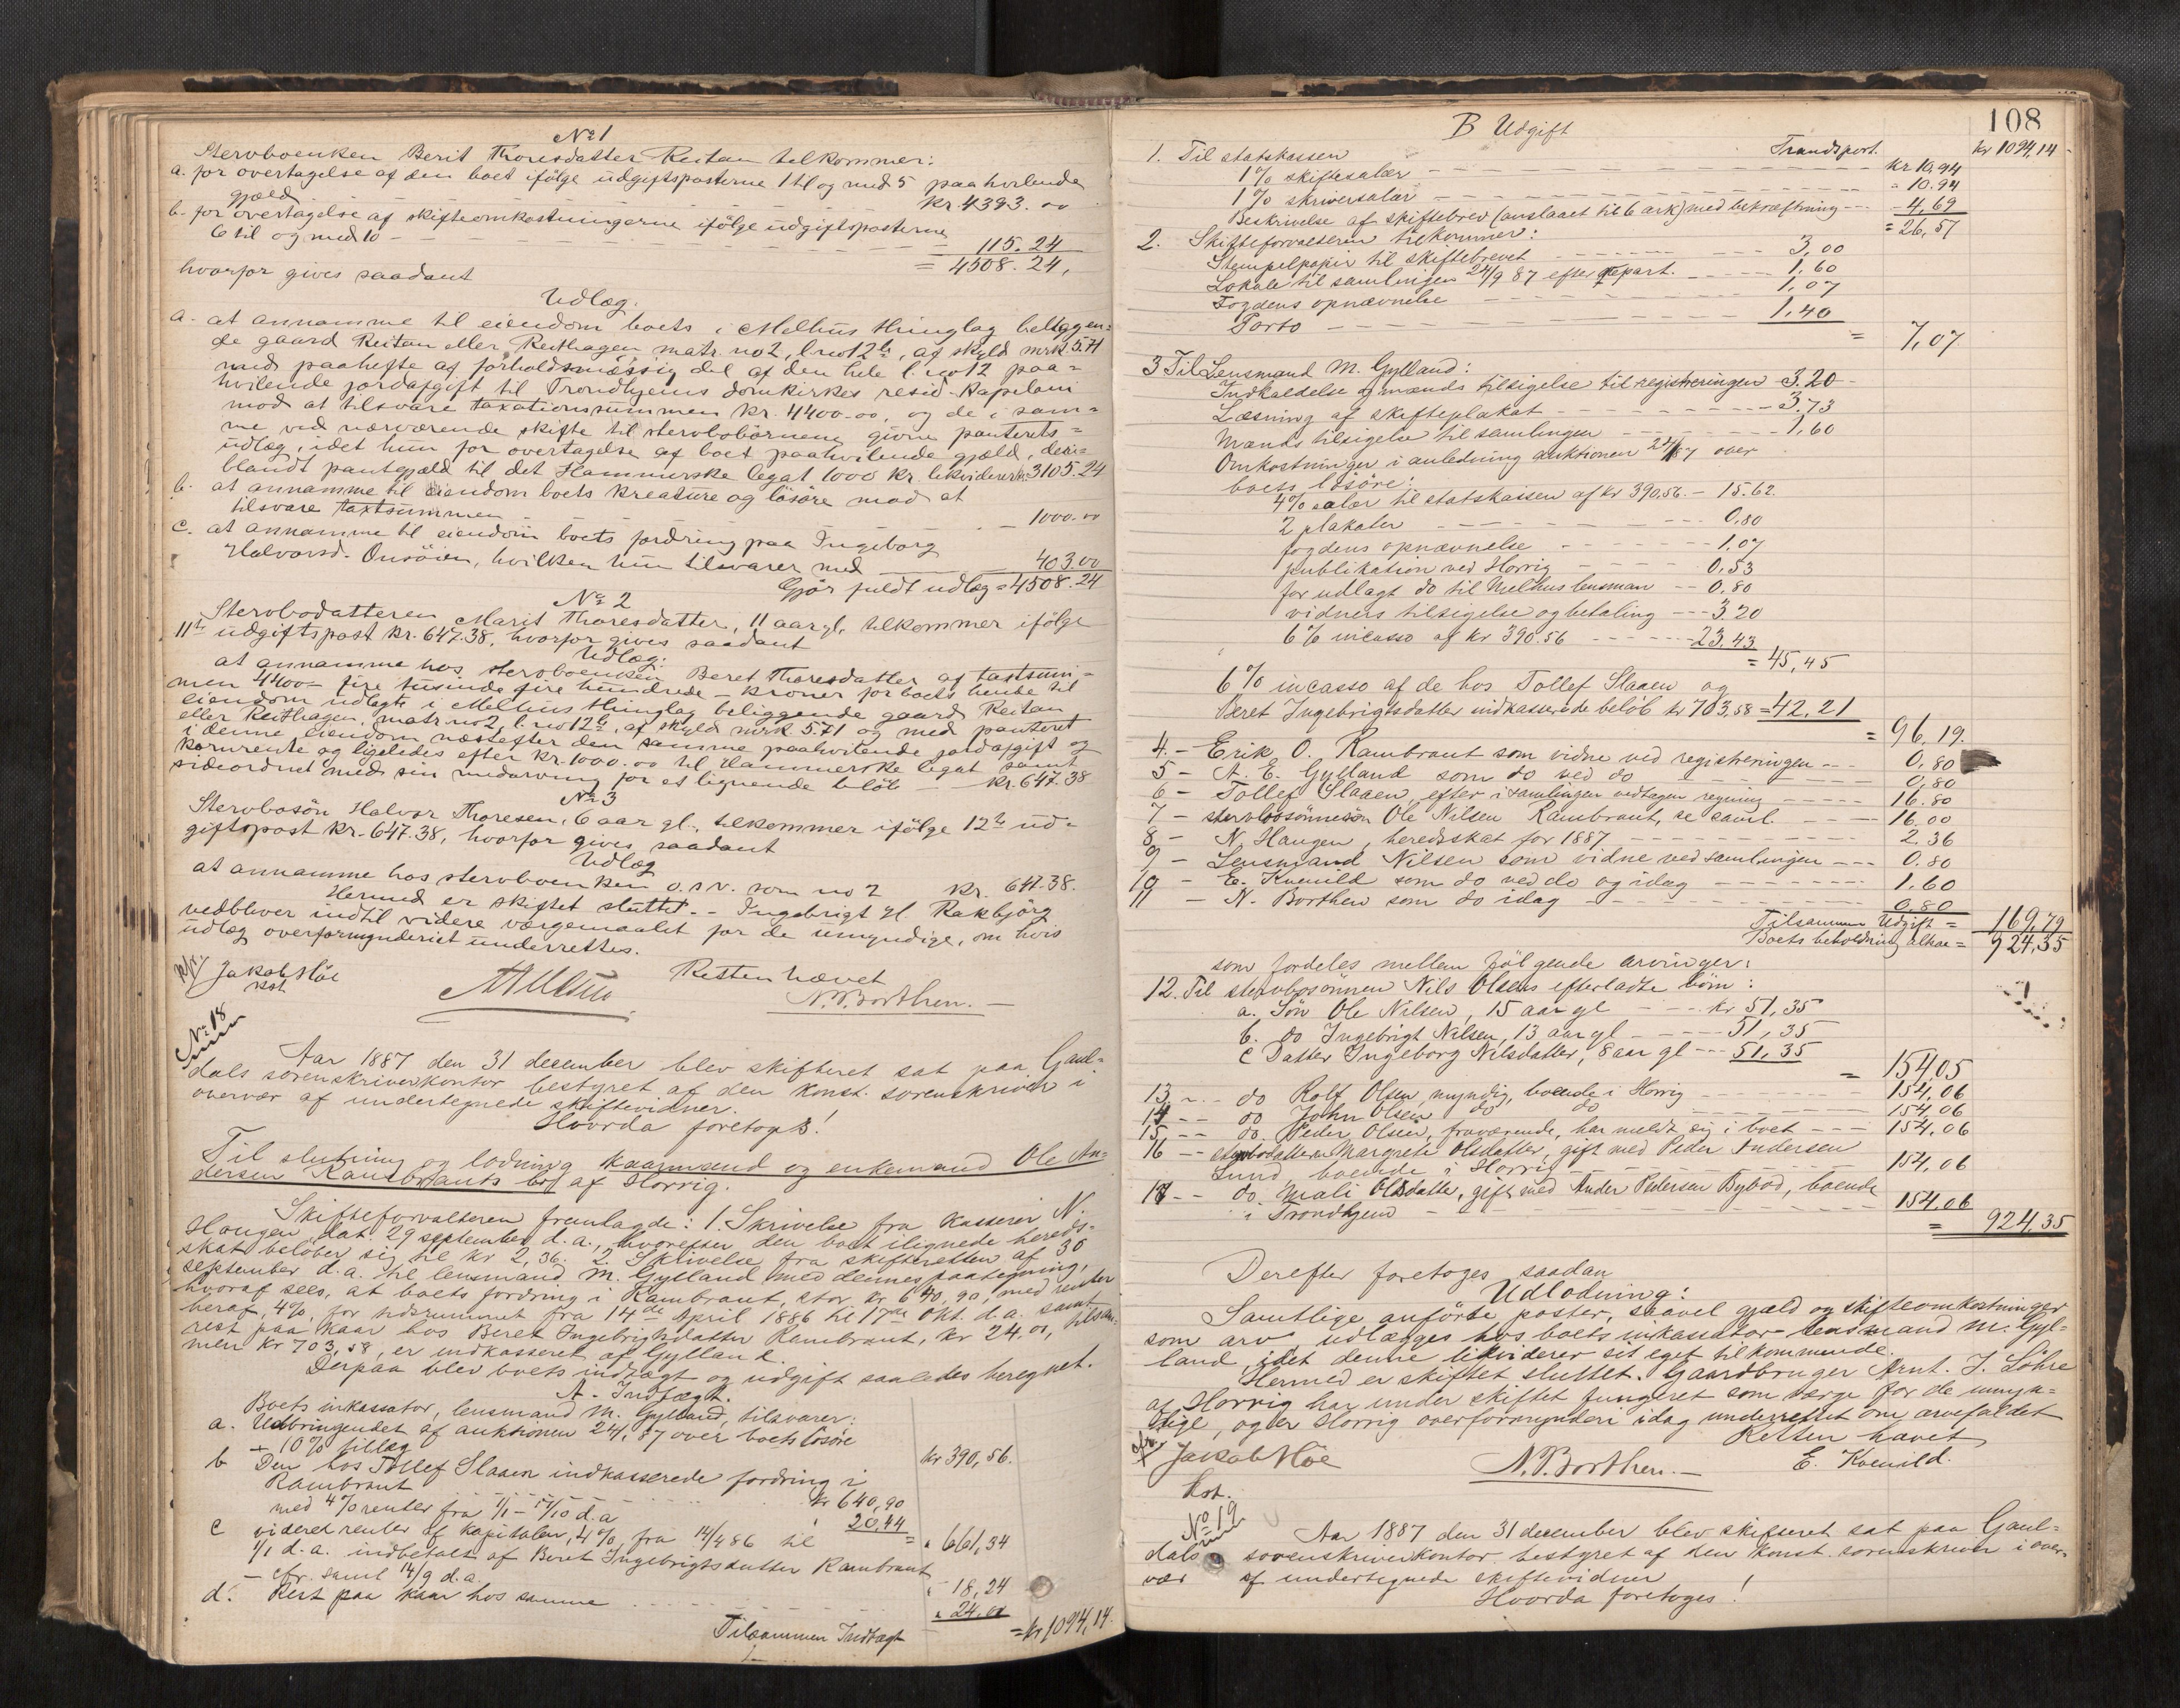 No 1
Stervboenken Berit Thoresdatter Reitan tilkommer:
a. for overtagelse af den boet ifölge udgiftsposterne 1 til og med 5 paahvilende
gjæld kr. 4393.00
b. for overtagelse af skifteomkostningerne ifölge udgiftsposterne
6 til og med 10 - 115.24
hvorfor gives saadant = 4508.24,
Udlæg.
a. at annamme til eiendom boets i Melhus thinglag beliggen=
de gaard Reitan eller Reithagen matr. no 2, l. no 12 b, af skyld mrk. 5.71
med paahefte af forholdsmæssig del af den hele l. no 12 paa=
hvilende jordafgift til Trondhjems domkirkes resid. Kapelani
mod at tilsvare taxationssummen kr. 4400.00, og de i sam=
me ved nærværende skifte til stervbobörnene givne panterets=
udlæg, idet hun for overtagelse af boet paahvilende gjæld, deri=
blandt pantegjæld til det Hammerske legat 1000 kr. likviderer kr. 3105.24
b. at annamme til eiendom boets kreature og lösöre mod at
tilsvare taxtsummen - 1000.00
c. at annamme til eiendom boets fordring paa Ingeborg
Halvorsd. Onsöien, hvilken hun tilsvarer med 403.00
Gjör fuldt udlæg = 4508.24
No 2
Stervbodatteren Marit Thoresdatter, 11 aar gl. tilkommer ifölge
11te udgiftspost kr. 647.38, hvorfor gives saadant
Udlæg:
at annamme hos stervboenken Beret Thoresdatter af taxtsum=
men 4400 - fire tusinde fire hundrede - kroner for boets hende til
eiendom udlagte i Melhus thinglag beliggende gaard Reitan
eller Reithagen, matr. no 2, l. no 12 b, af skyld mrk. 5.71 og med panteret
i denne eiendom næstefter den samme paahvilende jordafgift og
kornrente og ligeledes efter kr. 1000.00 til Hammerske legat samt
sideordnet med sin medarving for et lignende beløb - kr. 647.38
No 3
Stervbosön Halvor Thoresen, 6 aar gl., tilkommer ifölge 12te ud=
giftspost kr. 647.38, hvorfor gives saadant
Udlæg
at annamme hos stervboenken o.s.v. som no 2 kr. 647.38.
Hermed er skiftet sluttet. - Ingebrigt gl. Rakbjörg
vedbliver indtil videre værgemaalet for de umyndige, om hvis
udlæg overformynderiet underrettes.
Retten hævet
Jakob Höe
kst.
N. P. Borthen.
No 18
Aar 1887 den 31 december blev skifteret sat paa Gaul=
dals sorenskriverkontor bestyret af den konst. sorenskriver i
overvær af undertegnede skiftevidner.
Hvorda foretoges!
Til slutning og lodning kaarmand og enkemand Ole An=
dersen Rambrauts bo af Horrig.
Skifteforvalteren fremlagde: 1. Skrivelse fra kasserer N.
Haugen, dat. 29 september d.a., hvorefter den boet ilignede hereds=
skat beløber sig til kr 2,36. 2. Skrivelse fra skifteretten af 30
september d.a. til lensmand M. Gylland med dennes paategning,
hvoraf sees, at boets fordring i Rambraut, stor kr 640,90, med renter
heraf, 4%, for tidsrummet fra 14de April 1886 til 17de Okt. d.a. samt
rest paa kaar hos Beret Ingebrigtsdatter Rambraut, kr 24,00, tilsam=
men kr 703,58, er indkasseret af Gylland.
Derpaa blev boets indtægt og udgift saaledes beregnet.
A. Indtægt.
Boets inkassator, lensmand M. Gylland, tilsvarer:
a. Udbringendet af auktionen 24/1 87 over boets lösöre
+ 10% tillæg kr 390,56.
b Den hos Tollef Slaaen indkasserede fordring i
Rambraut kr 640,90
med 4% renter fra 1/1 - 17/10 d.a 20,44 = " 661,34
c videre renter af kapitalen, 4% fra 14/4 86 til
1/1 d.a. indbetalt af Beret Ingebrigtsdatter Rambraut
- cfr. saml 14/9 d.a. " 18,24
d. Rest paa kaar hos samme " 24.00
Tilsammen Indtægt = kr 1094,14.
108
B Udgift
Transport. kr 1094,14
1. Til statskassen
1% skiftesalær kr 10,94
1% skriversalær " 10.94
Beskrivelse af skiftebrev (anslaaet til 6 ark) med bekræftning - 4,69
= 26,57
2. Skifteforvalteren tilkommer:
Stempelpapir til skiftebrevet 3,00
Lokale til samlingen 24/9 87 efter repart. 1,60
Fogdens opnævnelse 1,07
Porto 1,40
= 7,07
3 Til Lensmand M. Gylland:
Indkaldelse og mænds tilsigelse til registreringen - 3.20
Læsning af skifteplakat - 3.73
Mænds tilsigelse til samlingen - 1,60
Omkostninger i anledning auktionen 24/1 87 over
boets lösöre:
4% salær til statskassen af kr 390,56. - 15.62.
2 plakater 0,80
fogdens opnævnelse 1,07
publikation ved Horrig 0,53
for udlagt do til Melhus lensman - 0,80
vidners tilsigelse og betaling - 3.20
6% incasso af kr 390.56 - 23.43
= 45,45
6% incasso af de hos Tollef Slaaen og
Beret Ingebrigtsdatter indkasserede beløb kr 703,58 = 42,21
= 96,19.
4. - Erik O. Rambraut som vidne ved registreringen - 0,80
5 - A. E. Gylland som do ved do 0,80
6 - Tollef Slaaen, efter i samlingen vedtagen regning 16.80
7 - stervbosönnesön Ole Nilsen Rambraut, se saml. 16.00
8 - N. Haugen, heredsskat for 1887 2,36
9 - Lensmand Nilsen som vidne ved samlingen 0.80
10 - E. Kvenild som do ved do og idag 1.60
11 - N. Borthen som do idag 0,80
Tilsammen Udgift = 169,79
Boets beholdning altsaa = 924,35
som fordeles mellem fölgende arvinger:
12. Til stervbosönnen Nils Olsens efterladte börn:
a. Sön Ole Nilsen, 15 aar gl - kr 51,35
b. do Ingebrigt Nilsen, 13 aar gl - 51,35
c Datter Ingeborg Nilsdatter, 8 aar gl - 51,35
= 154,05
13 - do Rolf Olsen, myndig, boende i Horrig 154,06
14 - do John Olsen do do 154,06
15 - do. Peder Olsen, fraværende, har meldt sig i boet 154,06
16 - stervbodatteren Margrete Olsdatter, gift med Peder Andersen
Lund, boende i Horrig 154,06
17 - do. Mali Olsdatter, gift med Ander Pedersen Bybod, boende
i Trondhjem 154.06
= 924,35
Derefter foretoges saadan
Udlodning:
Samtlige anförte poster, saavel gjæld og skifteomkostninger
som arv udlægges hos boets inkassator lensmand M. Gyl=
land, idet denne likviderer sit eget tilkommende.
Hermed er skiftet sluttet. Gaardbruger Arnt. J. Löhre
af Horrig har under skiftet fungeret som værge for de umyn=
dige, og er Horrig overformynderi idag underrettet om arvefaldet
Retten hævet
Jakob Höe
kst.
N. P. Borthen. -
E. Kvenild.
No 19
Aar 1887 den 31 december blev skifteret sat paa Gaul=
dals sorenskriverkontor bestyret af den konst. sorenskriver i over=
vær af undertegnede skiftevidner
Hvorda foretoges!